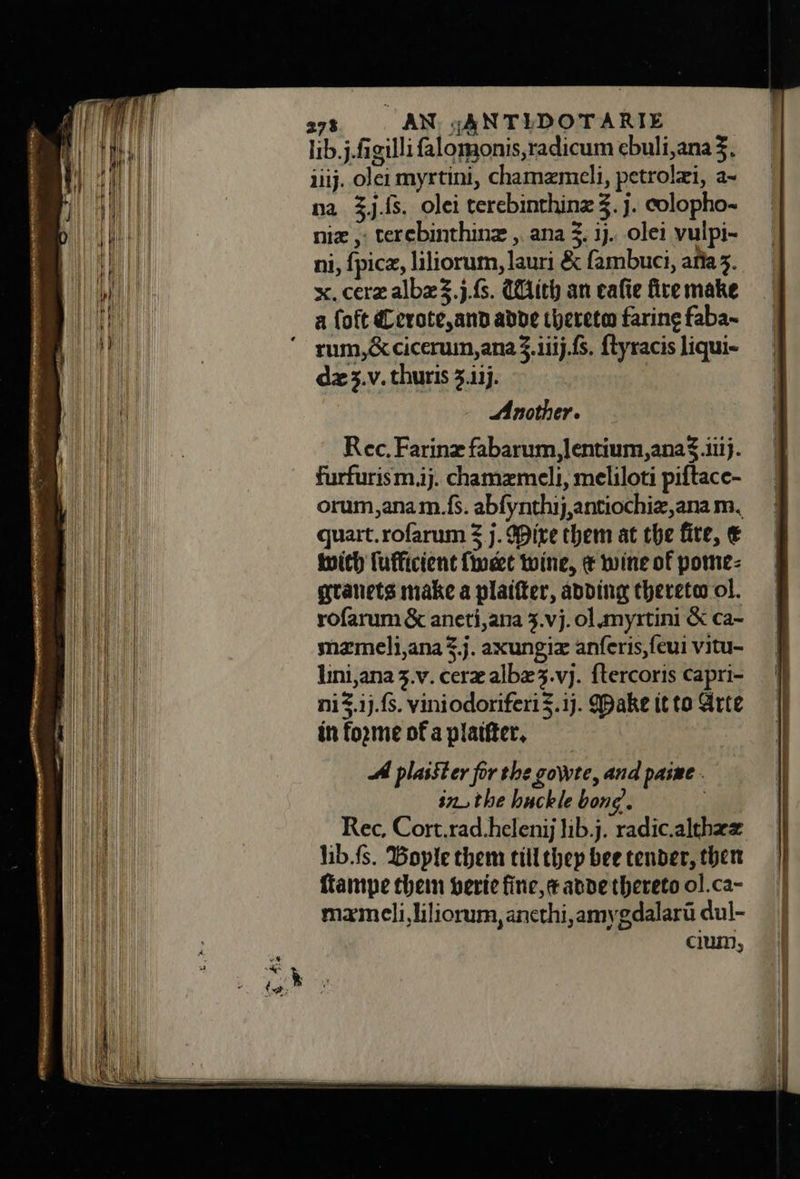 278 AN ANTIDOTARIE
lib.j.ſigilli ſalomonis,radicum ebuli,ana ℥.
iiij. olei myrtini, chamæmeli, petrolæi, a-
na ℥j.ſs. olei terebinthinæ ℥. j. colopho-
niæ , terebinthinæ , ana ℥. ij. olei vulpi-
ni, ſpicæ, liliorum, lauri & ſambuci, aña ʒ.
x. ceræ albæ ℥.j.ſs. With an eaſie fire make
a ſoft Cerote,and adde thereto farinę faba-
rum,& cicerum,ana ℥.iiij.ſs. ſtyracis liqui-
dæ ʒ.v. thuris ʒ.iij.
Another.
Rec. Farinæ fabarum,lentium,ana ℥.iiij.
furfuris m.ij. chamæmeli, meliloti piſtace-
orum,ana m.ſs. abſynthij,antiochiæ,ana m.
quart. roſarum ℥ j. Mixe them at the fire, &
with ſufficient ſweet wine, & wine of pome-
granets make a plaiſter, adding thereto ol.
roſarum & aneti,ana ʒ.vj. ol.myrtini & ca-
mæmeli,ana ℥.j. axungiæ anſeris,ſeui vitu-
lini,ana ʒ.v. ceræ albæ ʒ.vj. ſtercoris capri-
ni ℥.ij.ſs. vini odoriferi ℥.ij. Make it to Arte
in forme of a plaiſter.
A plaiſter for the gowte, and paine
in the buckle bone.
Rec. Cort.rad.helenij lib.j. radic.althææ
lib.ſs. Boyle them till they bee tender, then
ſtampe them verie fine, & adde thereto ol.ca-
mæmeli,liliorum,anethi,amygdalarũ dul-
cium,